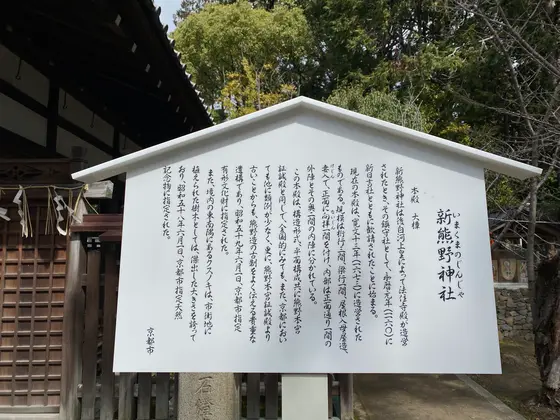 いまくまのじんじゃ
新熊野神社
本殿　大樟
新熊野神社は後白河上皇によって法住寺殿が造営
されたとき、その鎮守社として、永暦元年(一一六〇)に
新日吉社とともに勧請されたことに始まる。
現在の本殿は、寛文十三年(一六七三)に造営された
ものである。規模は桁行三間、梁行二間、屋根入母屋造、
妻入で、正面に向拝一間を付け、内部は正面通り一間の
外陣とその奥一間の内陣に分かれている。
この本殿は、構造形式、平面構成共に熊野本宮
証誠殿と同じで、全国的にみても、また、京都におい
ても他に類例が少なく、更に、熊野本宮証誠殿より
古いことからも、熊野造の古制をよく伝える貴重な
遺構であり、昭和五十九年六月一日、京都市指定
有形文化財に指定された。
また、境内の東南隅にあるクスノキは、市街地に
植えられた樹木としては、傑出した大きさを誇って
おり、昭和五十八年六月一日、京都市指定天然
記念物に指定された。
京都市